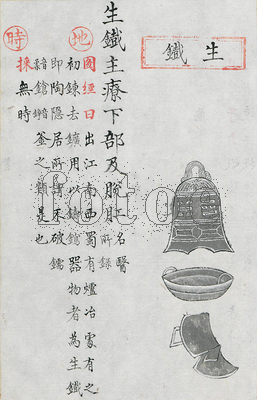 生鐵
生鐵主療下部及脫肛 名醫所錄
地 圖經曰出江南西蜀有爐冶處有之
初鍊去鑛用以鑄器物者為生鐵
即陶隱居所謂不破鑐
鎗釜之類是也
時 採無時
fotoe